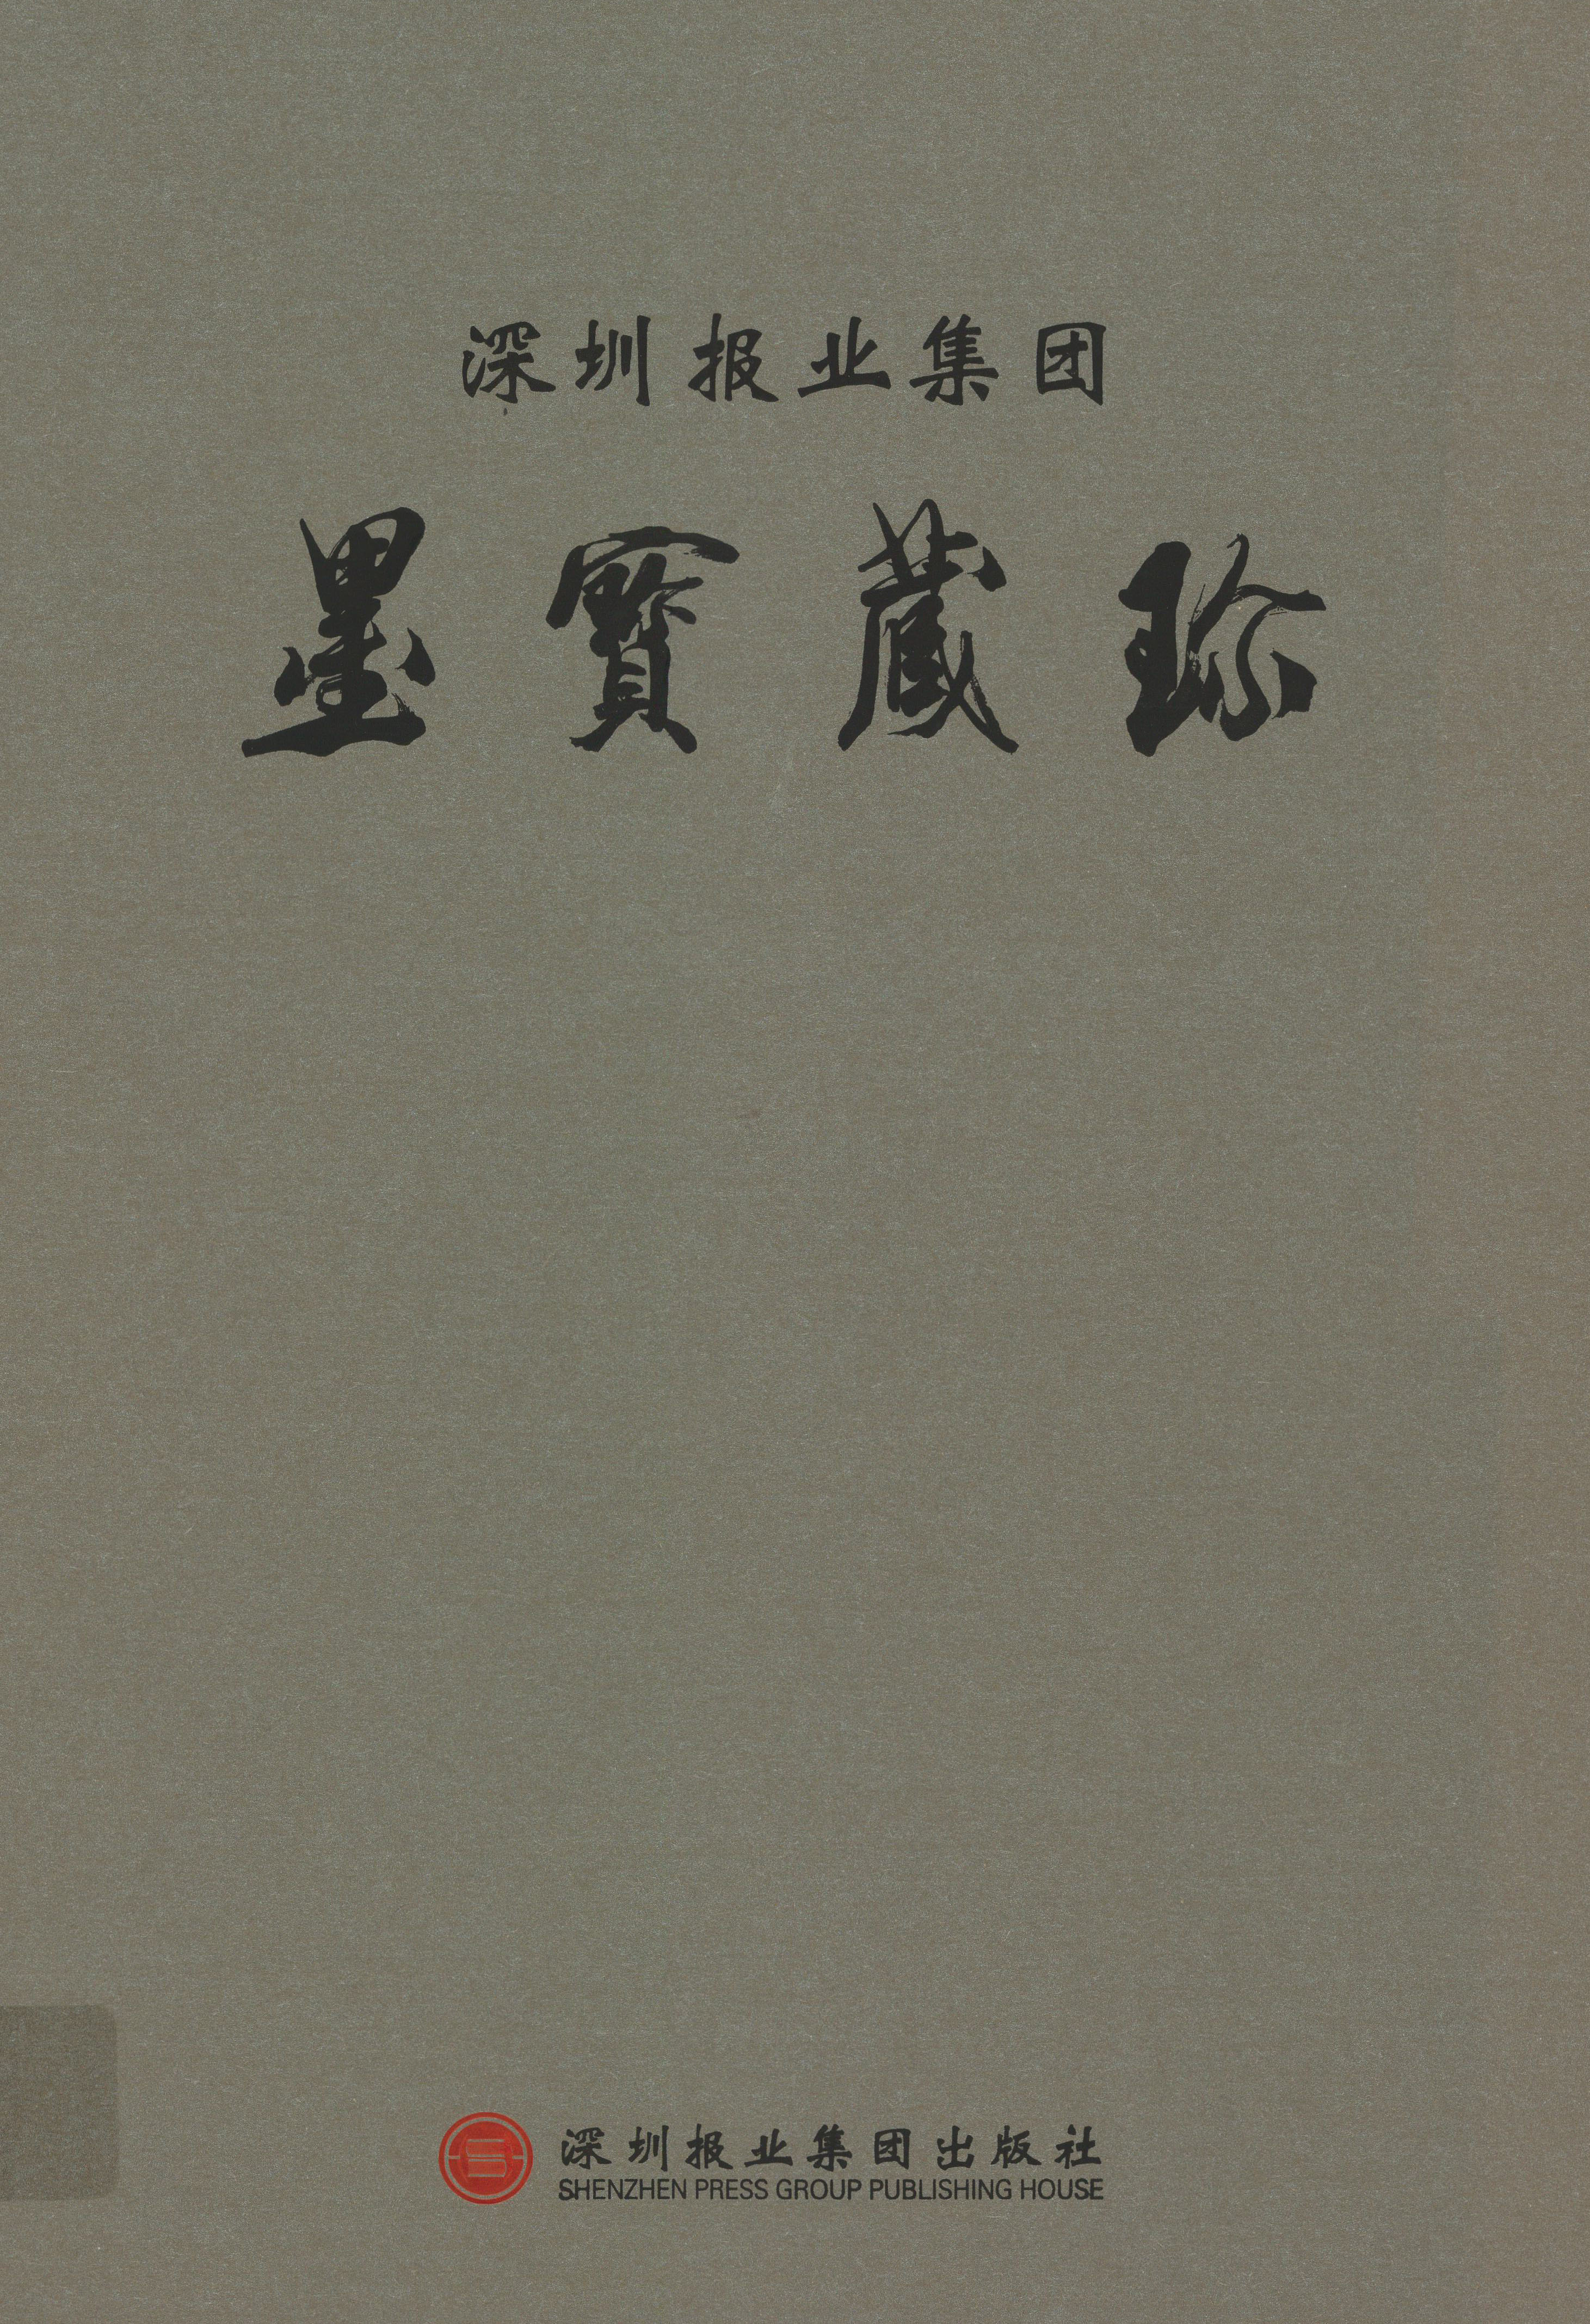 深圳报业集团
墨寳藏珍
深圳报业集团出版社
SHENZHEN PRESS GROUP PUBLISHING HOUSE